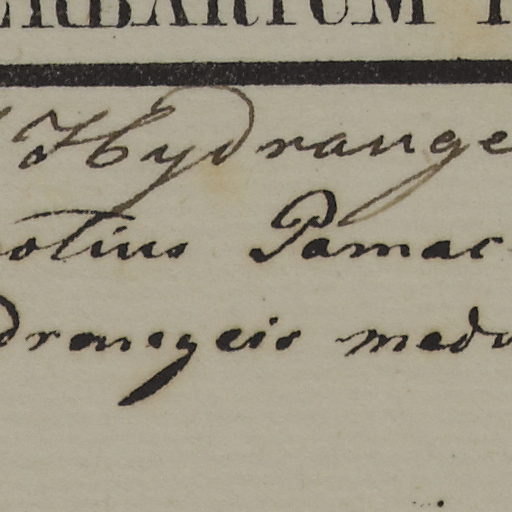 ERBARIUM
Hydrange
otius Pamac
drangeis medu